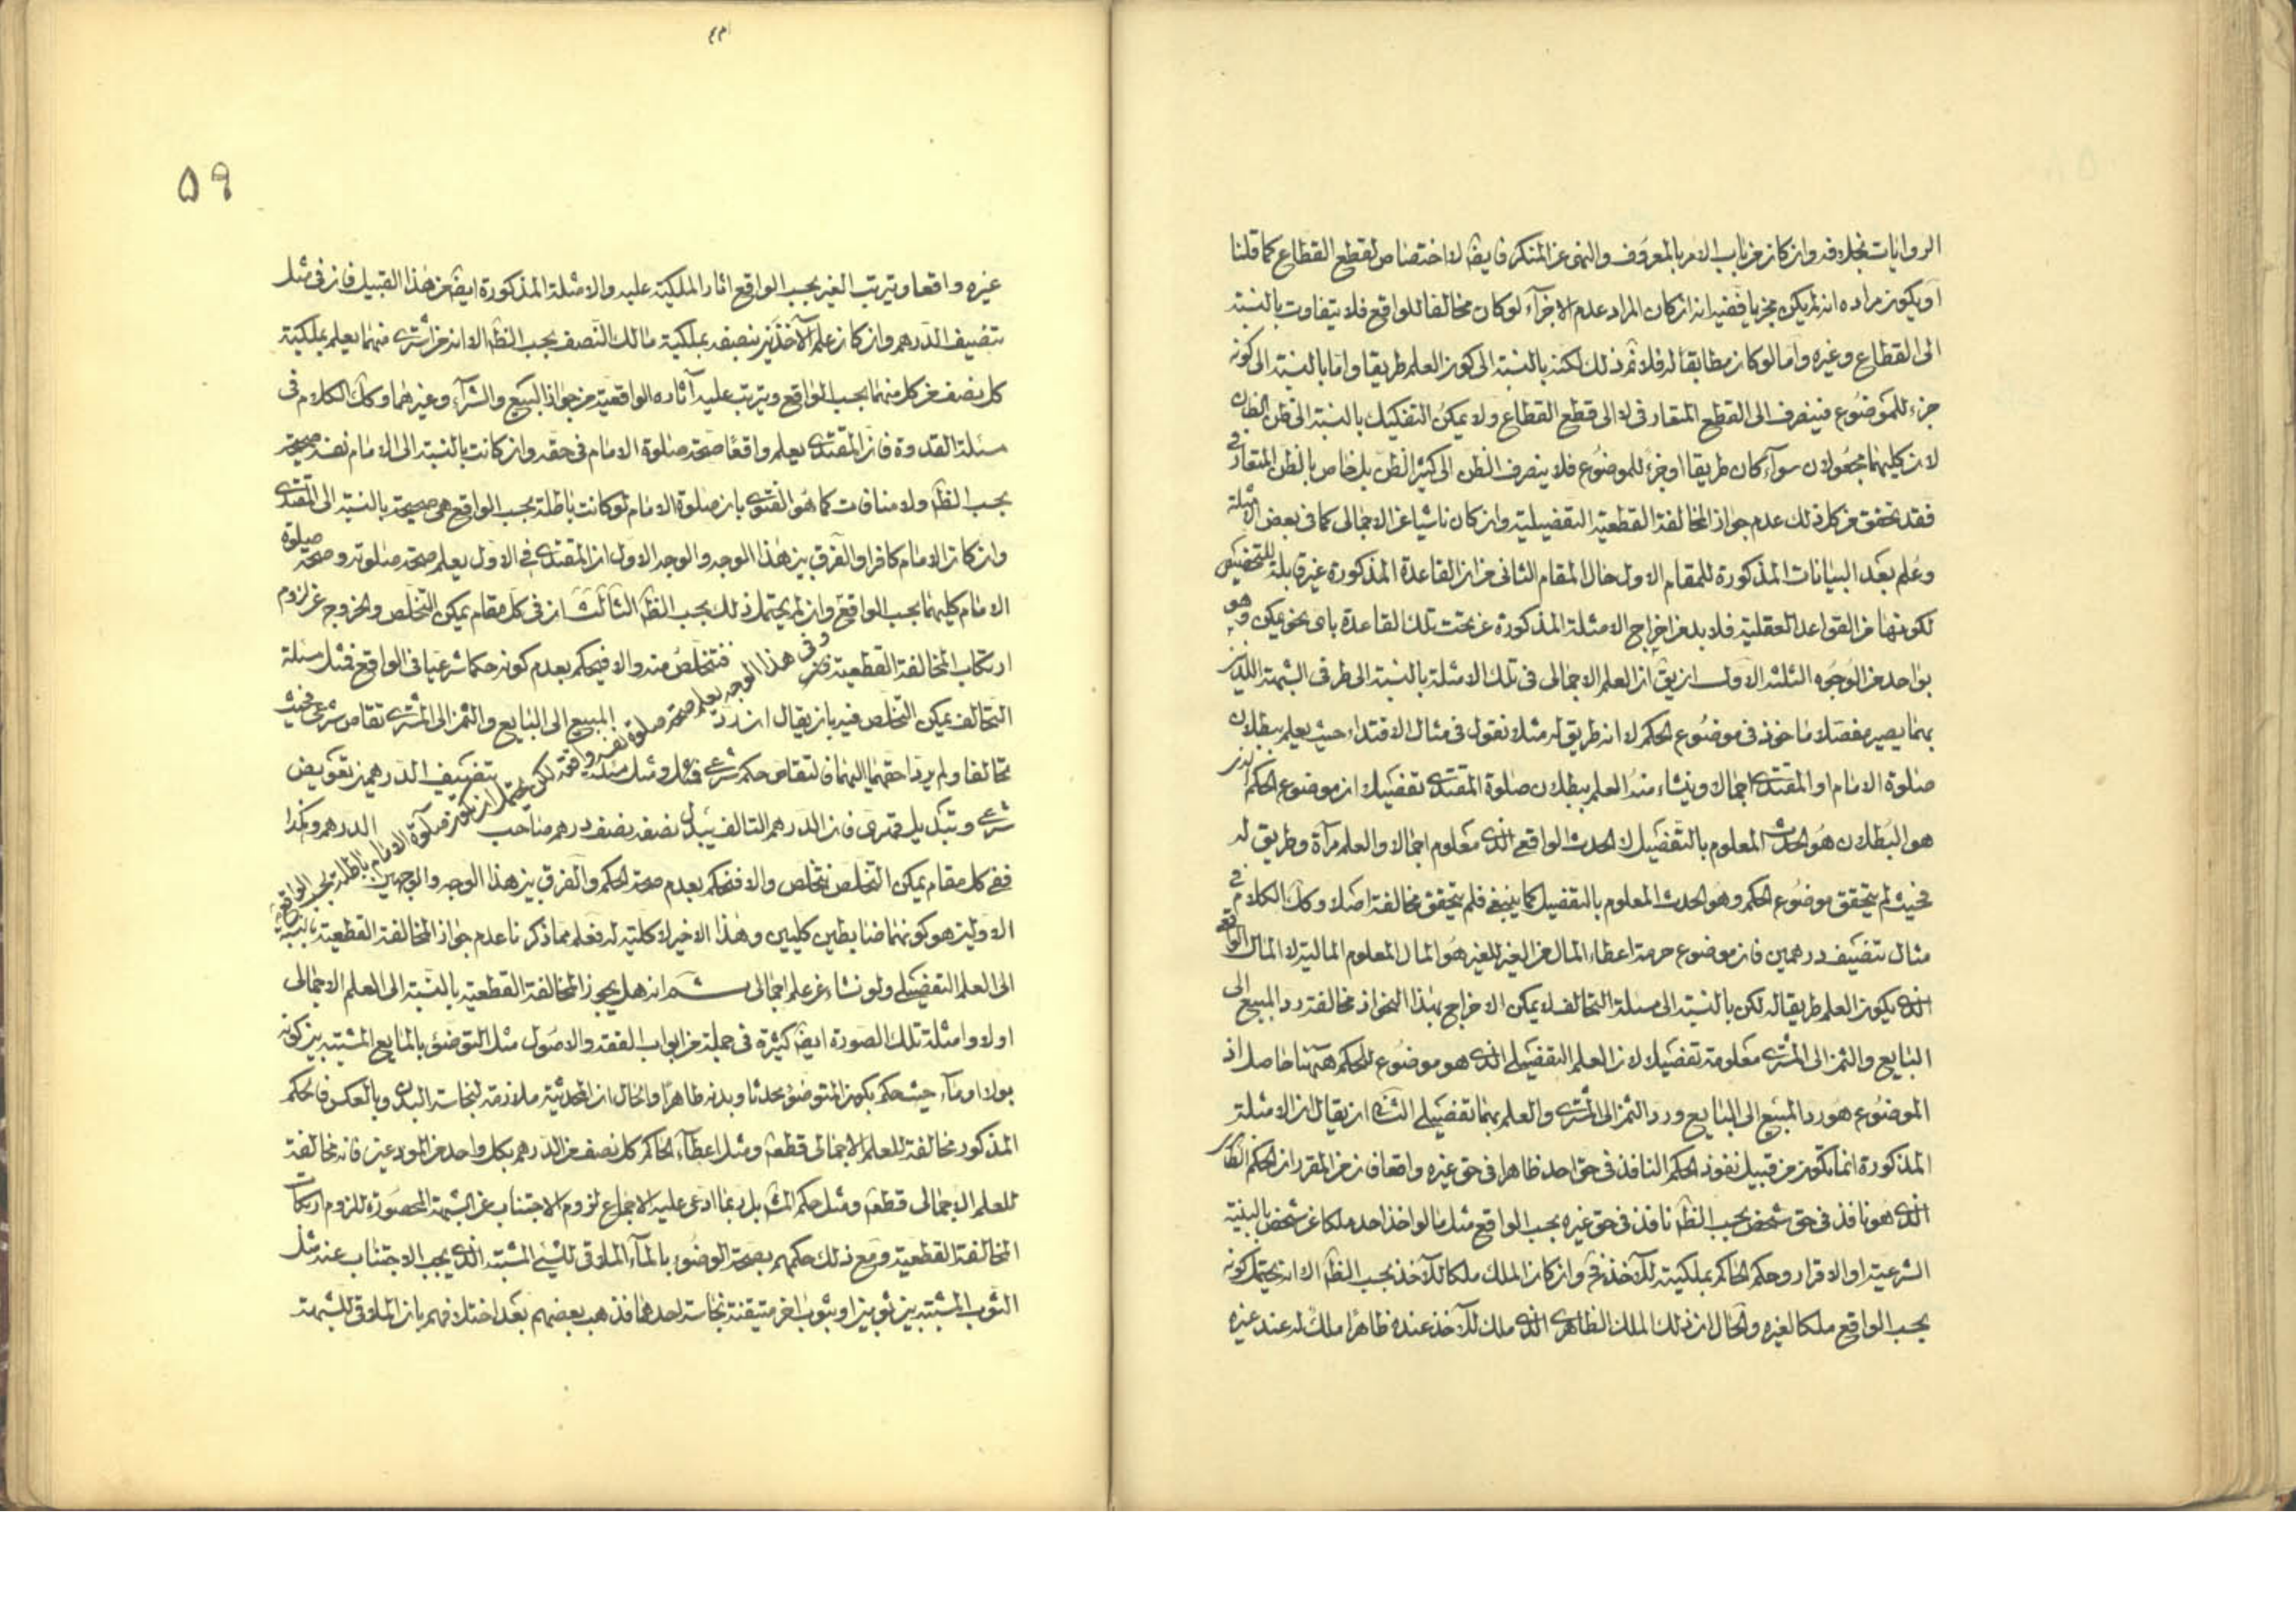 الروايات بخلافه وان كان من باب الامر بالمعروف والنهى عن المنكر فايضا لا اختصاص لقطع القطاع كما قلنا
او يكون مراده انه لم يكن مجزيا ففيه انه ان كان المراد عدم الاجزآء لو كان مخالفا للواقع فلا يتفاوت بالنسبة
الى القطاع وغيره واما لو كان مطابقا له فلا ثم ذلك لكنه بالنسبة الى كون العلم طريقا واما بالنسبة الى كونه
جزء للموضوع فينصرف الى القطع المتعارف لا الى قطع القطاع ولا يمكن التفكيك بالنسبة الى ظن الظان
لان كليهما مجعولان سوآء كان طريقا او جزء للموضوع فلا ينصرف الظن الى كثير الظن بل خاص بالظن المتعارف
فقد تحقق من كل ذلك عدم جواز المخالفة القطعية التفصيلية وان كان ناشيا عن الاجمالى كما فى بعض الامثلة
وعلم بعد البيانات المذكورة للمقام الاول حال المقام الثانى من ان القاعدة المذكورة غير قابلة للتخصيص
لكونها من القواعد العقلية فلا بد من اخراج الامثلة المذكورة عن تحت تلك القاعدة باى نحو يمكن وهو
بواحد من الوجوه الثلثة الاول ان يق ان العلم الاجمالى فى تلك الامثلة بالنسبة الى طرفى الشبهة اللذين
بهما يصير مفصلا ماخوذ فى موضوع الحكم لا انه طريق له مثلا نقول فى مثال الاقتداء حيث يعلم ببطلان
صلوة الامام او المقتدى اجمالا وينشاء منه العلم ببطلان صلوة المقتدى تفصيلا ان موضوع الحكم الذى
هو البطلان هو الحدث المعلوم بالتفصيل لا الحدث الواقعى الذى معلوم اجمالا والعلم مرآة وطريق له
فحيث لم يتحقق موضوع الحكم وهو الحدث المعلوم بالتفصيل كما ينبغى فلم يتحقق مخالفة اصلا وكك الكلام فى
مثال تنصيف درهمين فان موضوع حرمة اعطاء المال من الغير للغير هو المال المعلوم المالية لا المال الواقعى
الذى يكون العلم طريقا له لكن بالنسبة الى مسئلة التحالف لا يمكن الاخراج بهذا النحو اذ مخالفة رد المبيع الى
البايع والثمن الى المشترى معلومة تفصيلا لان العلم التفصيلى الذى هو موضوع للحكم ههنا حاصل اذ
الموضوع هو رد المبيع الى البايع ورد الثمن الى المشترى والعلم بهما تفصيلى الثانى ان يقال ان الامثلة
المذكورة انما تكون من قبيل نفوذ الحكم النافذ فى حق احد ظاهرا فى حق غيره واقعا فان من المقرر ان الحكم الظاهرى
الذى هو نافذ فى حق شخص بحسب الظ نافذ فى حق غيره بحسب الواقع مثل ما لو اخذ احد ملكا عن شخص بالبينة
الشرعية او الاقرار وحكم الحاكم بملكيته للآخذ فح وان كان الملك ملكا للآخذ بحسب الظ الا انه يحتمل كونه
بحسب الواقع ملكا لغيره والحال ان ذلك الملك الظاهرى الذى ملك للآخذ عنده ظاهرا ملك له عند غيره
٥٩
غيره واقعا ويترتب الغير بحسب الواقع اثار الملكية عليه والامثلة المذكورة ايضا من هذا القبيل فان فى مثل
تنصيف الدرهم وان كان علم الآخذين بنصفه بملكية مالك النصف بحسب الظ الا انه من اشترى منهما يعلم بملكية
كل نصف من كل منهما بحسب الواقع ويترتب عليه آثاره الواقعية من جواز البيع والشرآء وغيرهما وكك الكلام فى
مسئلة القدوة فان المقتدى يعلم واقعا صحة صلوة الامام فى حقه وان كانت بالنسبة الى الامام نفسه صحيحة
بحسب الظ ولا منافات كما هو الفتوى بان صلوة الامام لو كانت باطلة بحسب الواقع هى صحيحة بالنسبة الى المقتدى
وان كان الامام كافرا والفرق بين هذا الوجه والوجه الاول ان المقتدى فى الاول يعلم صحة صلوته وصحة صلوة
الامام كليهما بحسب الواقع وان لم يحتمل ذلك بحسب الظ الثالث ان فى كل مقام يمكن التخلص والخروج عن لزوم
وفى هذا الوجه يعلم صحة صلوة نفسه واقعة لكن يحتمل ان تكون صلوة الامام باطلة بحسب الواقع
ارتكاب المخالفة القطعية فنتخلص منه والا فيحكم بعدم كونه حكما شرعيا فى الواقع فمثل مسئلة
التحالف يمكن التخلص فيه بان يقال ان رد المبيع الى البايع والثمن الى المشترى تقاص شرعى فحيث
تحالفا ولم يردا حقهما اليهما فالتقاص حكم شرعى ومثل مسئلة تنصيف الدرهمين تعويض
شرعى وتبديل قهرى فان الدرهم التالف يبدل نصفه بنصف درهم صاحب الدرهم وهكذا
ففى كل مقام يمكن التخلص نتخلص والا فنحكم بعدم صحة الحكم والفرق بين هذا الوجه والوجهين
الاولين هو كونهما ضابطين كليين وهذا الاخير لا كلية له فعلم مما ذكرنا عدم جواز المخالفة القطعية بالنسبة
الى العلم التفصيلى ولو نشاء عن علم اجمالى ثم انه هل يجوز المخالفة القطعية بالنسبة الى العلم الاجمالى
اولا وامثلة تلك الصورة ايضا كثيرة فى جملة من ابواب الفقه والاصول مثل التوضؤ بالمايع المشتبه بين كونه
بولا او مآء حيث حكم بكون المتوضؤ محدثا وبدنه طاهرا والحال ان المحدثية ملازمة لنجاسة البدن وبالعكس فالحكم
المذكور مخالفة للعلم الاجمالى قطعا ومثل اعطآء الحاكم كل نصف من الدرهم بكل واحد من المودعين فانه مخالفة
للعلم الاجمالى قطعا ومثل حكم المش بل ربما ادعى عليه الاجماع لزوم الاجتناب عن الشبهة المحصورة للزوم ارتكاب
المخالفة القطعية ومع ذلك حكمهم بصحة الوضوء بالمآء الملاقى للشئ المشتبه الذى يجب الاجتناب عنه مثل
الثوب المشتبه بين ثوبين او بثوب اخر متيقنة نجاسة احدهما فذهب بعضهم بعد اختلافهم بان الملاقى للشبهة